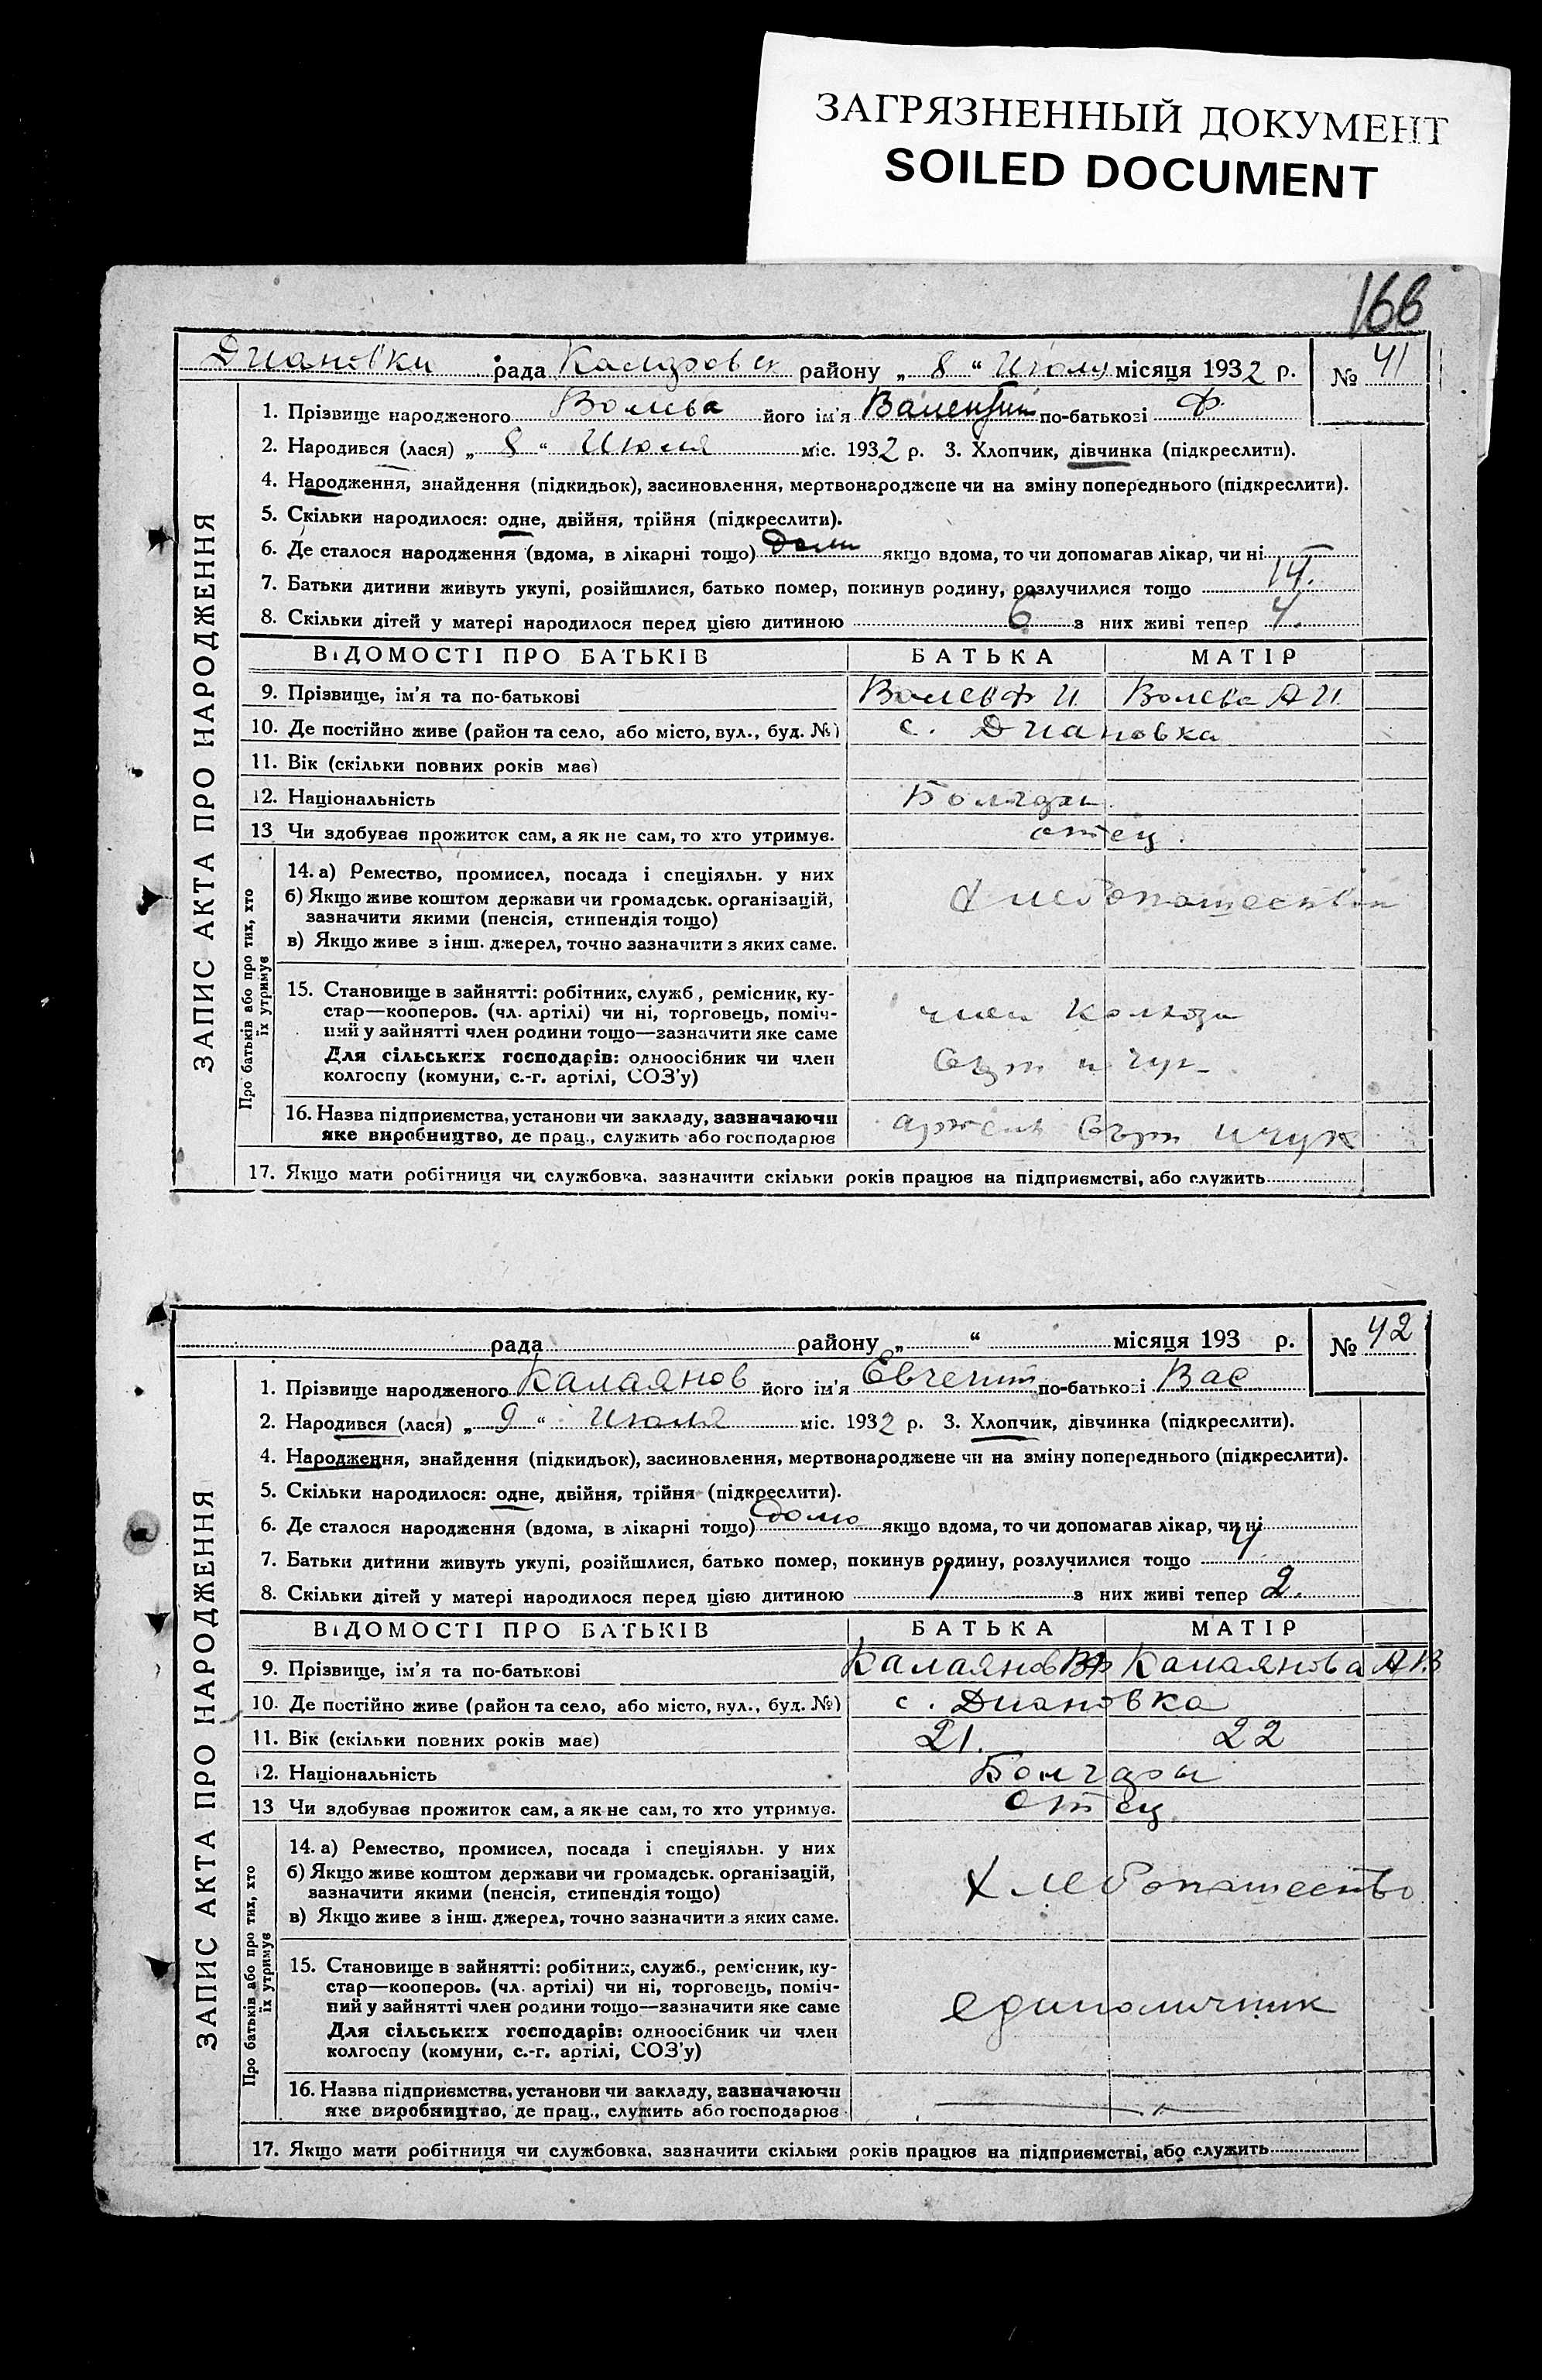 ЗАГРЯЗНЕННЫЙ ДОКУМЕНТ
SOILED DOCUMENT
166
Диановки рада района „ 8 “ Июля місяця 1932 р. № 41
1. Прізвище народженого Волева його ім'я Валентин по-батькові Ф.
2. Народився (лася) „ 8 “ Июля міс. 1932 р. 3. Хлопчик, дівчинка (підкреслити).
4. Народження, знайдення (підкидьок), засиновлення, мертвонароджене чи на зміну попереднього (підкреслити).
5. Скільки народилося: одне, двійня, трійня (підкреслити).
6. Де сталося народження (вдома, в лікарні тощо) дома якщо вдома, то чи допомагав лікар, чи ні —
7. Батьки дитини живуть укупі, розійшлися, батько помер, покинув родину, розлучилися тощо 14.
8. Скільки дітей у матері народилося перед цією дитиною 6 з них живі тепер 4.
ВІДОМОСТІ ПРО БАТЬКІВ БАТЬКА МАТІР
9. Прізвище, ім'я та по-батькові Волев Ф И. Волева А И.
10. Де постійно живе (район та село, або місто, вул., буд. №) с. Диановка
11. Вік (скільки повних років має)
12. Національність Болгары
13 Чи здобував прожиток сам, а як не сам, то хто утримує. отец.
14. а) Ремество, промисел, посада і спеціяльн. у них
б) Якщо живе коштом держави чи громадськ. організацій,
зазначити якими (пенсія, стипендія тощо)
в) Якщо живе з інш. джерел, точно зазначити з яких саме.
Хлебопашество
15. Становище в зайнятті: робітник, служб., ремісник, ку-
стар—кооперов. (чл. артілі) чи ні, торговець, поміч-
ний у зайнятті член родини тощо—зазначити яке саме
Для сільських господарів: одноосібник чи член
колгоспу (комуни, с.-г. артілі, СОЗ'у)
член колхоза
Сърп и чук
16. Назва підприємства, установи чи закладу, зазначаючи
яке виробництво, де прац., служить або господарює
артель Сърп и чук
17. Якщо мати робітниця чи службовка, зазначити скільки років працює на підприємстві, або служить
ЗАПИС АКТА ПРО НАРОДЖЕННЯ
Про батьків або про тих, хто
їх утримує
рада району „ “ місяця 193 р. № 42
1. Прізвище народженого Калаянов його ім'я Евгений по-батькові Вас
2. Народився (лася) „ 9 “ Июля міс. 1932 р. 3. Хлопчик, дівчинка (підкреслити).
4. Народження, знайдення (підкидьок), засиновлення, мертвонароджене чи на зміну попереднього (підкреслити).
5. Скільки народилося: одне, двійня, трійня (підкреслити).
6. Де сталося народження (вдома, в лікарні тощо) дома якщо вдома, то чи допомагав лікар, чи ні
7. Батьки дитини живуть укупі, розійшлися, батько помер, покинув родину, розлучилися тощо 4
8. Скільки дітей у матері народилося перед цією дитиною 1 з них живі тепер 2.
ВІДОМОСТІ ПРО БАТЬКІВ БАТЬКА МАТІР
9. Прізвище, ім'я та по-батькові Калаянов ВФ Калаянова А
10. Де постійно живе (район та село, або місто, вул., буд. №) с. Диановка
11. Вік (скільки повних років має) 21. 22
12. Національність Болгары
13 Чи здобував прожиток сам, а як не сам, то хто утримує. отец.
14. а) Ремество, промисел, посада і спеціяльн. у них
б) Якщо живе коштом держави чи громадськ. організацій,
зазначити якими (пенсія, стипендія тощо)
в) Якщо живе з інш. джерел, точно зазначити з яких саме.
Хлебопашество
15. Становище в зайнятті: робітник, служб., ремісник, ку-
стар—кооперов. (чл. артілі) чи ні, торговець, поміч-
ний у зайнятті член родини тощо—зазначити яке саме
Для сільських господарів: одноосібник чи член
колгоспу (комуни, с.-г. артілі, СОЗ'у)
единоличник
16. Назва підприємства, установи чи закладу, зазначаючи
яке виробництво, де прац., служить або господарює
17. Якщо мати робітниця чи службовка, зазначити скільки років працює на підприємстві, або служить
ЗАПИС АКТА ПРО НАРОДЖЕННЯ
Про батьків або про тих, хто
їх утримує